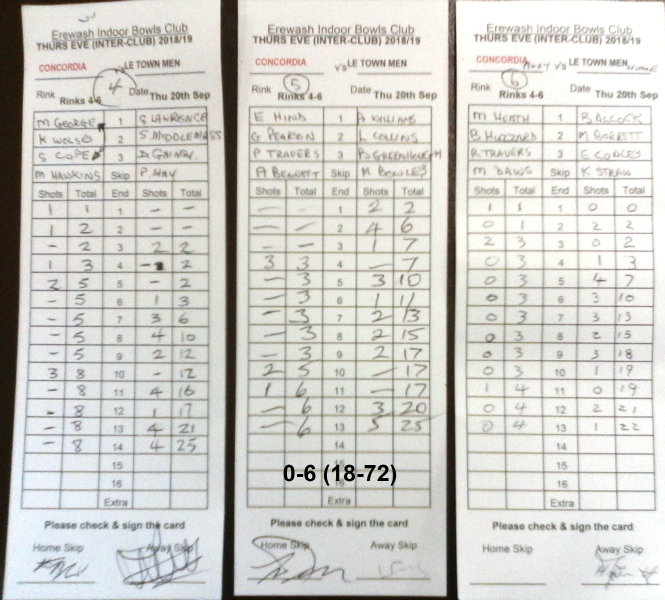 Erewash Indoor Bowls Club
THURS EVE (INTER-CLUB) 2018/19
CONCORDIA LE TOWN MEN
4
Rink Rinks 4-6 Date Thu 20th Sep
M GEORGE 1 G LAWRENCE
K WOLSEY 2 S MIDDLEMASS
S COPE 3 D GAINEY.
M HAWKINS Skip P. MAY
Shots Total End Shots Total
1 1 1 - -
1 2 2 - -
- 2 3 2 2
1 3 4 - 2
2 5 5 - 2
- 5 6 1 3
- 5 7 3 6
- 5 8 4 10
- 5 9 2 12
3 8 10 - 12
- 8 11 4 16
- 8 12 1 17
- 8 13 4 21
- 8 14 4 25
15
16
Extra
Please check & sign the card
Home Skip Away Skip
Erewash Indoor Bowls Club
THURS EVE (INTER-CLUB) 2018/19
CONCORDIA v's LE TOWN MEN
5
Rink Rinks 4-6 Date Thu 20th Sep
E HIND 1 A WILLIAMS
G PEARSON 2 L COLLINS
P TRAVERS 3 B GREENHOUGH
A BENNETT Skip M BEADLES
Shots Total End Shots Total
- - 1 2 2
- - 2 4 6
- - 3 1 7
3 3 4 - 7
- 3 5 3 10
- 3 6 1 11
- 3 7 2 13
- 3 8 2 15
- 3 9 2 17
2 5 10 - 17
1 6 11 - 17
- 6 12 3 20
- 6 13 5 25
14
15
0-6 (18-72)
16
Extra
Please check & sign the card
Home Skip Away Skip
Erewash Indoor Bowls Club
THURS EVE (INTER-CLUB) 2018/19
CONCORDIA AWAY v's LE TOWN MEN HOME
6
Rink Rinks 4-6 Date Thu 20th Sep
M HEATH 1 B ALCOCK
B HUZZARD 2 M BORRETT
R TRAVERS 3 E COOLEY
M DAWS Skip K STRAW
Shots Total End Shots Total
1 1 1 0 0
0 1 2 2 2
2 3 3 0 2
0 3 4 1 3
0 3 5 4 7
0 3 6 3 10
0 3 7 3 13
0 3 8 2 15
0 3 9 3 18
0 3 10 1 19
1 4 11 0 19
0 4 12 2 21
0 4 13 1 22
14
15
16
Extra
Please check & sign the card
Home Skip Away Skip